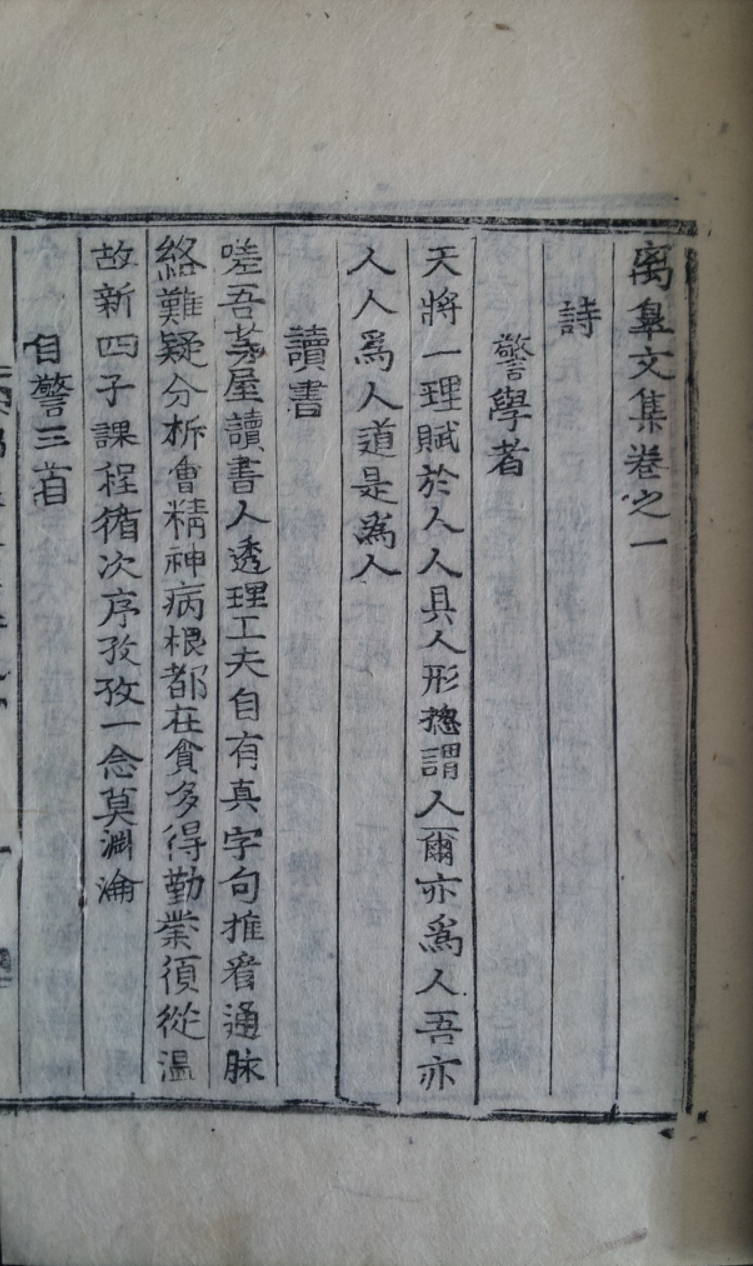 离皐文集卷之一
詩
警學者
天將一理賦於人人具人形摠謂人爾亦爲人吾亦
人人爲人道是爲人
讀書
嗟吾茅屋讀書人透理工夫自有真字句推看通脉
絡難疑分析會精神病根都在貪多得勤業須從溫
故新四子課程循次序孜孜一念莫淵淪
自警三首